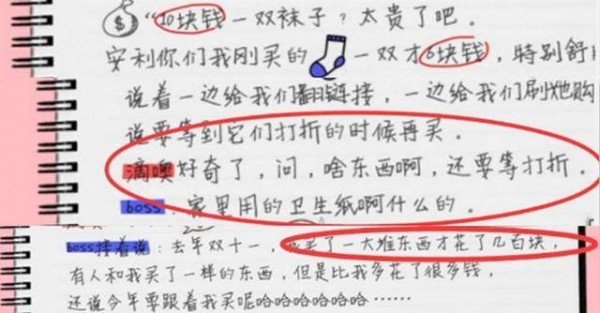 “10块钱一双袜子？太贵了吧。
安利你们我刚买的 一双才6块钱，特别舒
说着一边给我们翻链接，一边给我们刷她购
说要等到它们打折的时候再买．
滴噢好奇了，问，啥东西啊，还要等打折．
boss：家里用的卫生纸啊什么的．
boss接着说：去年双十一，我买了一大堆东西才花了几百块，
有人和我买了一样的东西，但是比我多花了很多钱，
还说今年要跟着我买呢哈哈哈哈哈哈哈……